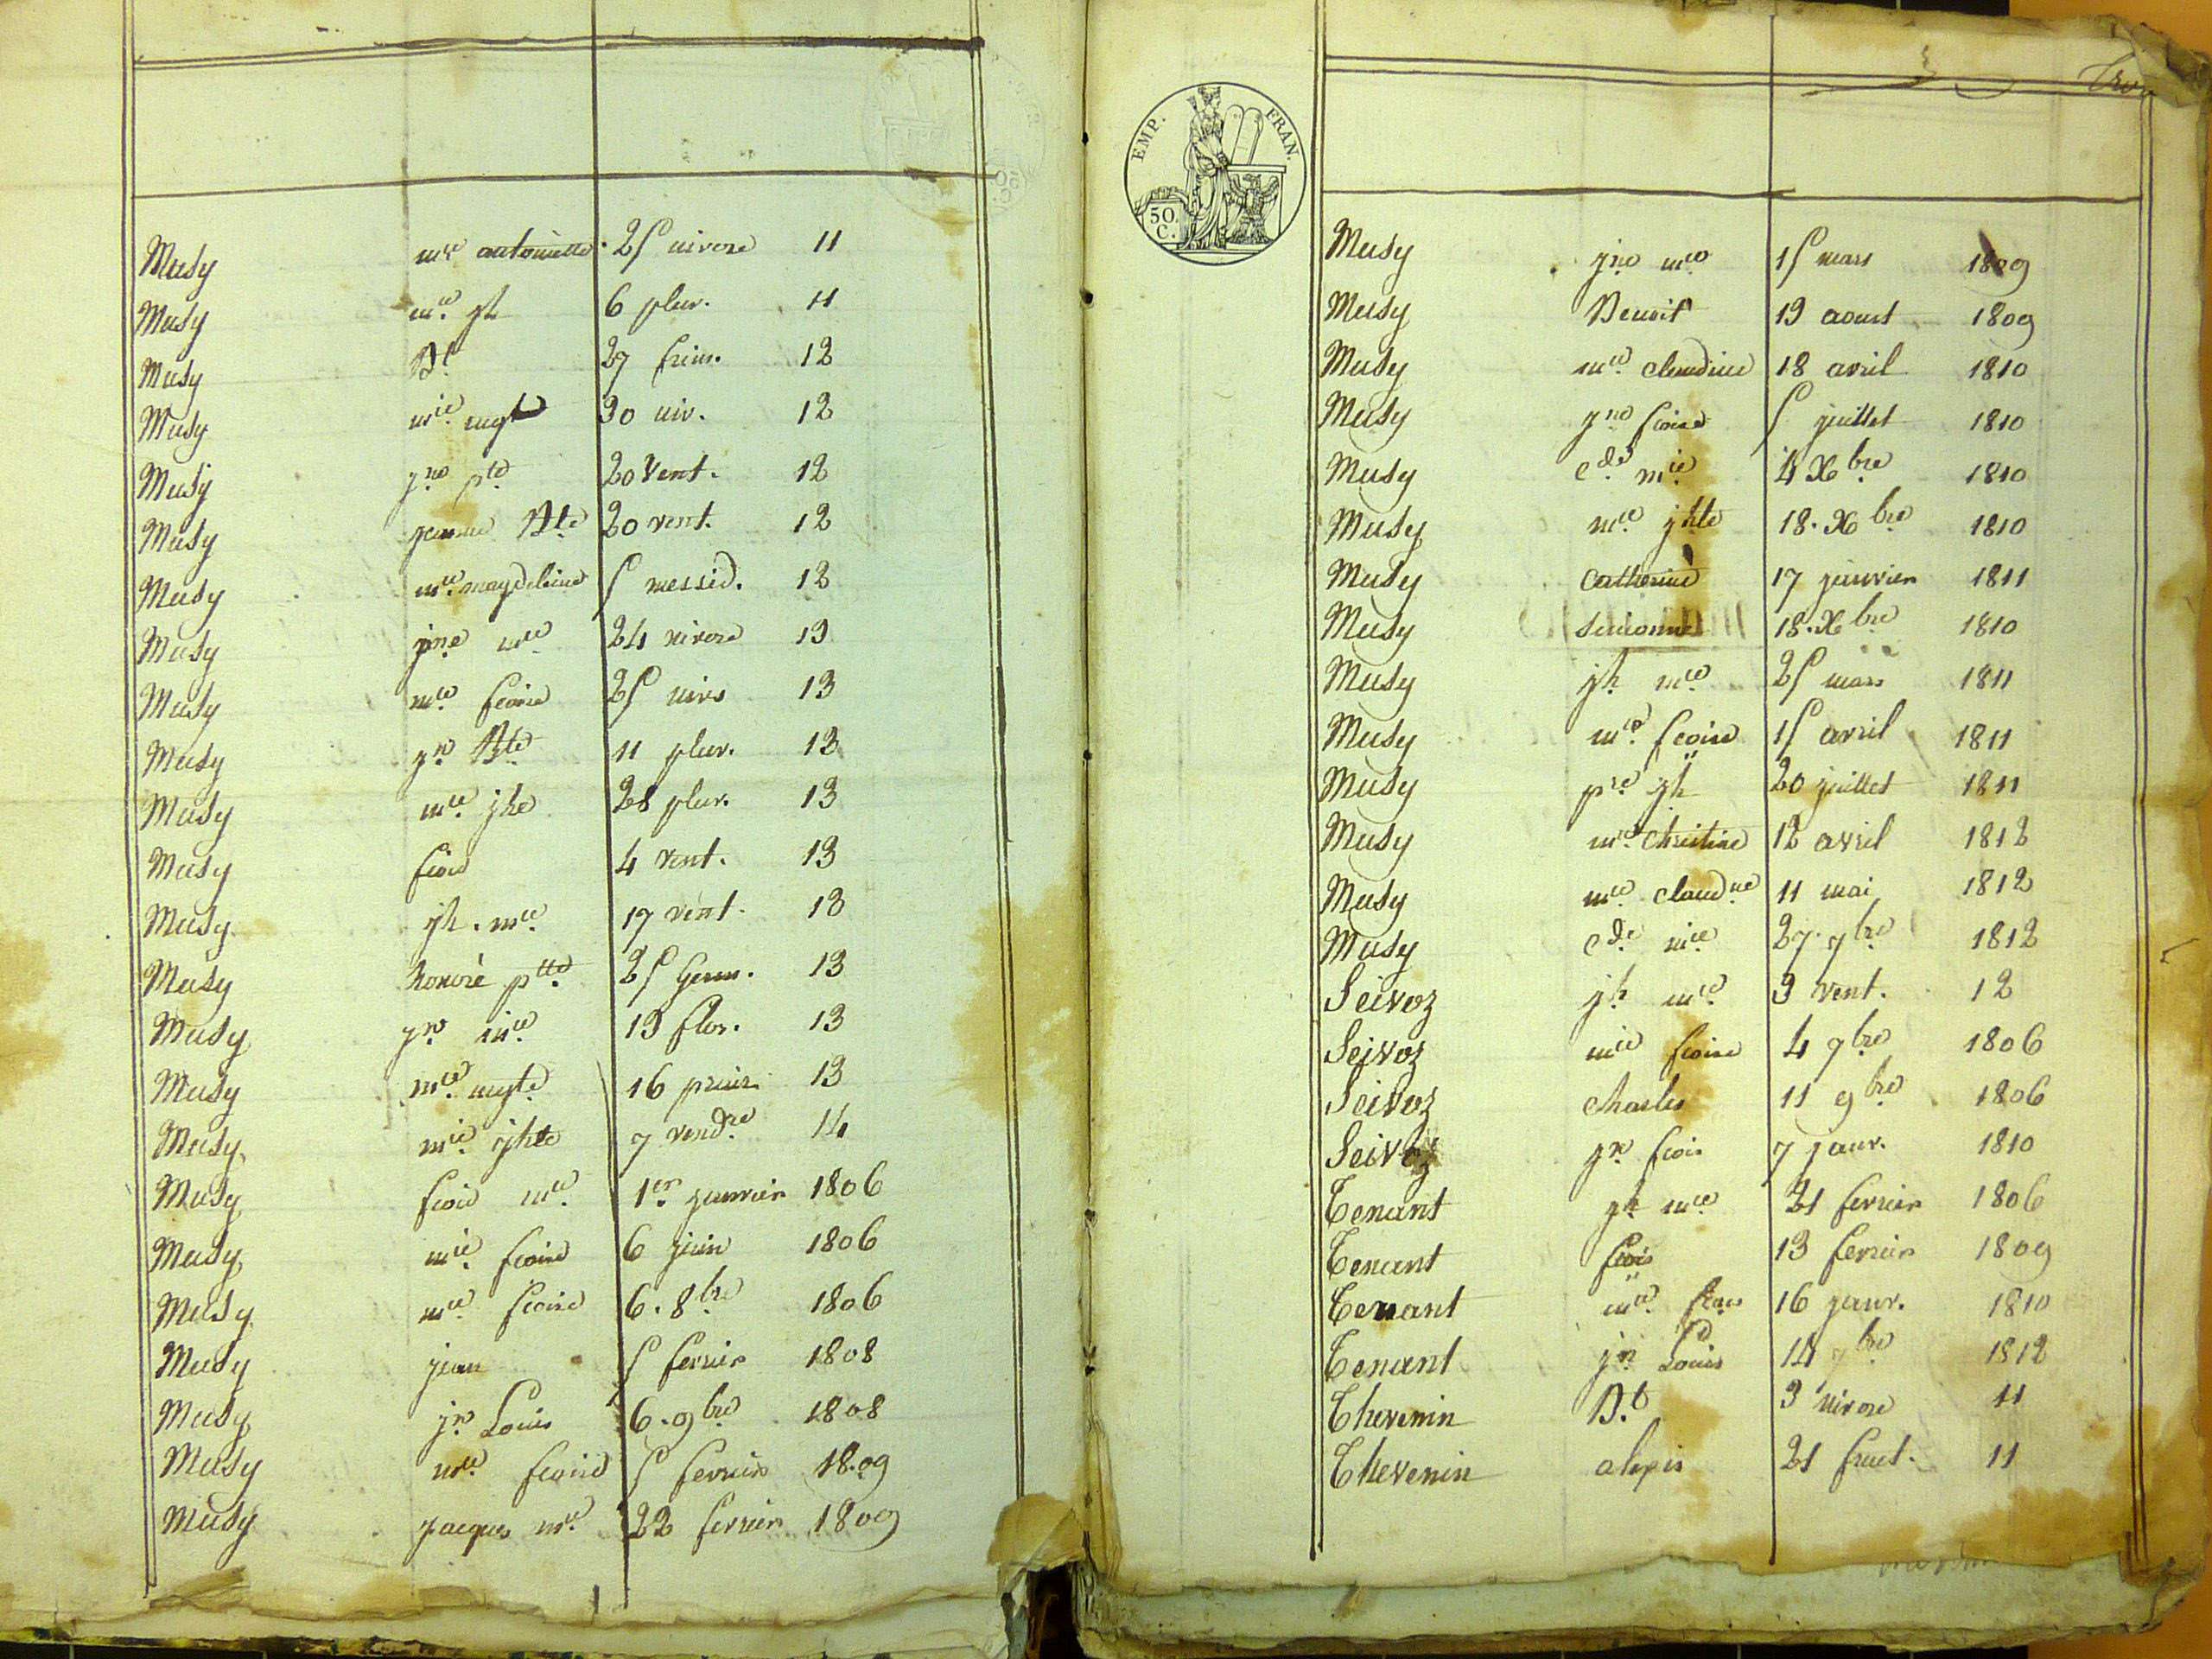 Musy mie antoinette 25 nivose 11
Musy mie jh 6 pluv. 11
Musy Bt 27 frim. 12
Musy mie mgte 30 niv. 12
Musy jne pte 20 Vent. 12
Musy jeanne Bte 20 vent. 12
Musy mie magdeleine 5 messid. 12
Musy jne mie 24 nivose 13
Musy mie fcoise 25 nivo 13
Musy jn Bte 11 pluv. 13
Musy mie jhe 28 pluv. 13
Musy fcois 4 vent. 13
Musy jh. mie 17 vent. 13
Musy honoré ptte 25 Germ. 13
Musy jne mie 13 flor. 13
Musy mie mgte 16 prair. 13
Musy mie jhte 7 vendre 14
Musy fcois mie 1er janvier 1806
Musy mie fcoise 6 juin 1806
Musy mie fcoise 6. 8bre 1806
Musy jean 5 fevrier 1808
Musy jn Louis 6. 9bre 1808
Musy mie fcoise 5 fevrier 1809
Musy jacques mie 22 fevrier 1809
EMP. FRAN.
50 C.
Musy jne mie 15 mars 1809
Musy Benoit 19 aoust 1809
Musy mie claudine 18 avril 1810
Musy jne fcoise 5 juillet 1810
Musy cde mie 4 Xbre 1810
Musy mie jhte 18. Xbre 1810
Musy Catherine 17 janvier 1811
Musy simonne 18. Xbre 1810
Musy jh mie 25 mars 1811
Musy mie fcoise 15 avril 1811
Musy pre jh 20 juillet 1811
Musy mie Christine 12 avril 1812
Musy mie claudne 11 mai 1812
Musy cde mie 27. 7bre 1812
Seivoz jh mie 3 vent. 12
Seivoz mie fcoise 4 9bre 1806
Seivoz Charles 11 9bre 1806
Seivoz jn fcois 7 janv. 1810
Tenant jh mie 21 fevrier 1806
Tenant fcois 13 fevrier 1809
Tenant mie 16 janv. 1810
Tenant jn Louis 14 7bre 1812
Thevenin Bt 3 nivose 11
Thevenin alexis 21 fruct. 11